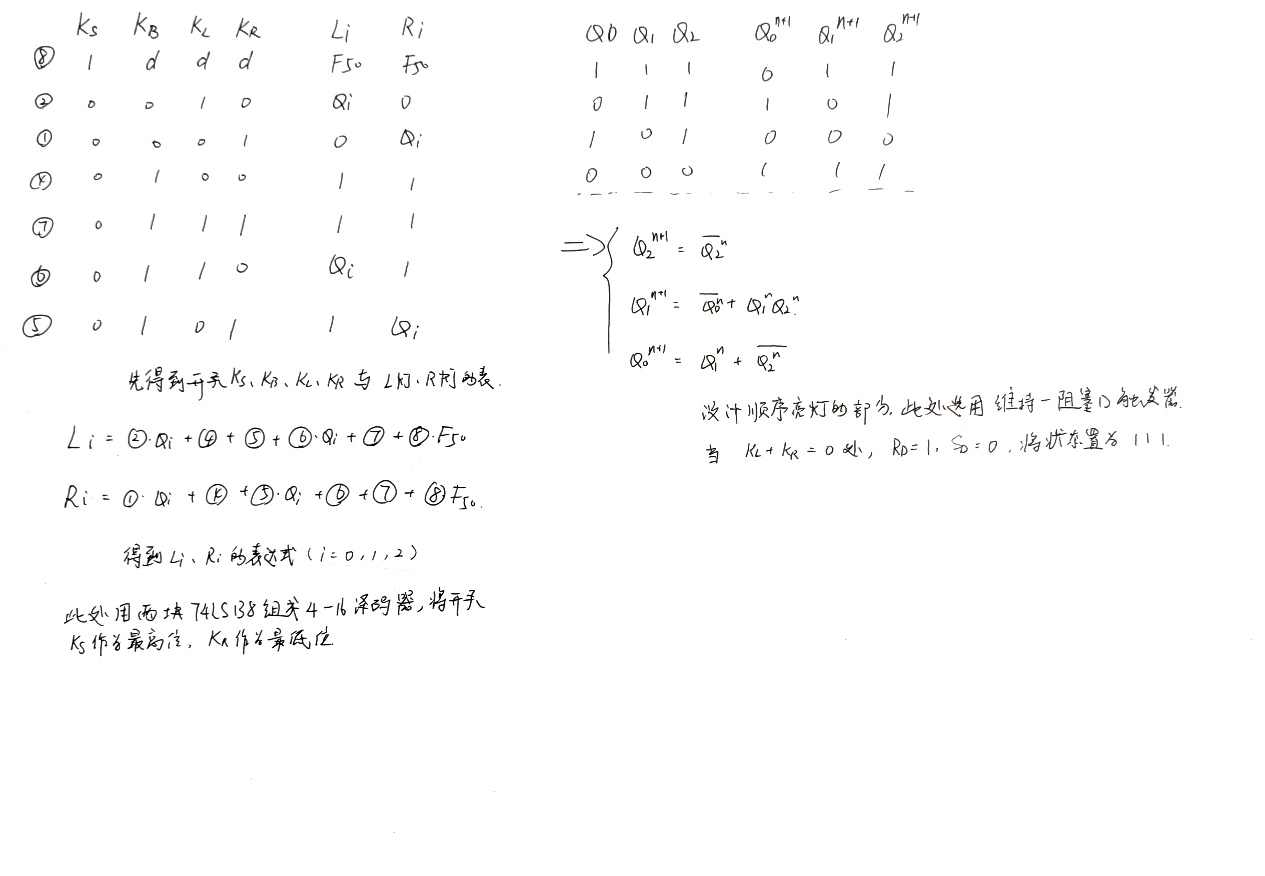 Ks KB KL KR Li Ri
⑧ 1 d d d F50 F50
② 0 0 1 0 Qi 0
① 0 0 0 1 0 Qi
④ 0 1 0 0 1 1
⑦ 0 1 1 1 1 1
⑥ 0 1 1 0 Qi 1
⑤ 0 1 0 1 1 Qi
先得到开关Ks、KB、KL、KR与L灯、R灯的表.
Li = ②·Qi + ④ + ⑤ + ⑥·Qi + ⑦ + ⑧·F50
Ri = ①·Qi + ④ + ⑤·Qi + ⑥ + ⑦ + ⑧F50.
得到Li、Ri的表达式(i=0,1,2)
此处用两块74LS138组成4-16译码器,将开关
Ks作为最高位,KR作为最低位
Q0 Q1 Q2 Q0^n+1 Q1^n+1 Q2^n+1
1 1 1 0 1 1
0 1 1 1 0 1
1 0 1 0 0 0
0 0 0 1 1 1
⇒ { Q2^n+1 = \overline{Q2^n}
Q1^n+1 = \overline{Q0^n} + Q1^n Q2^n.
Q0^n+1 = Q1^n + \overline{Q2^n}
设计顺序亮灯的部分.此处选用维持-阻塞D触发器.
当 KL+KR=0处, RD=1, SD=0,将状态置为111.